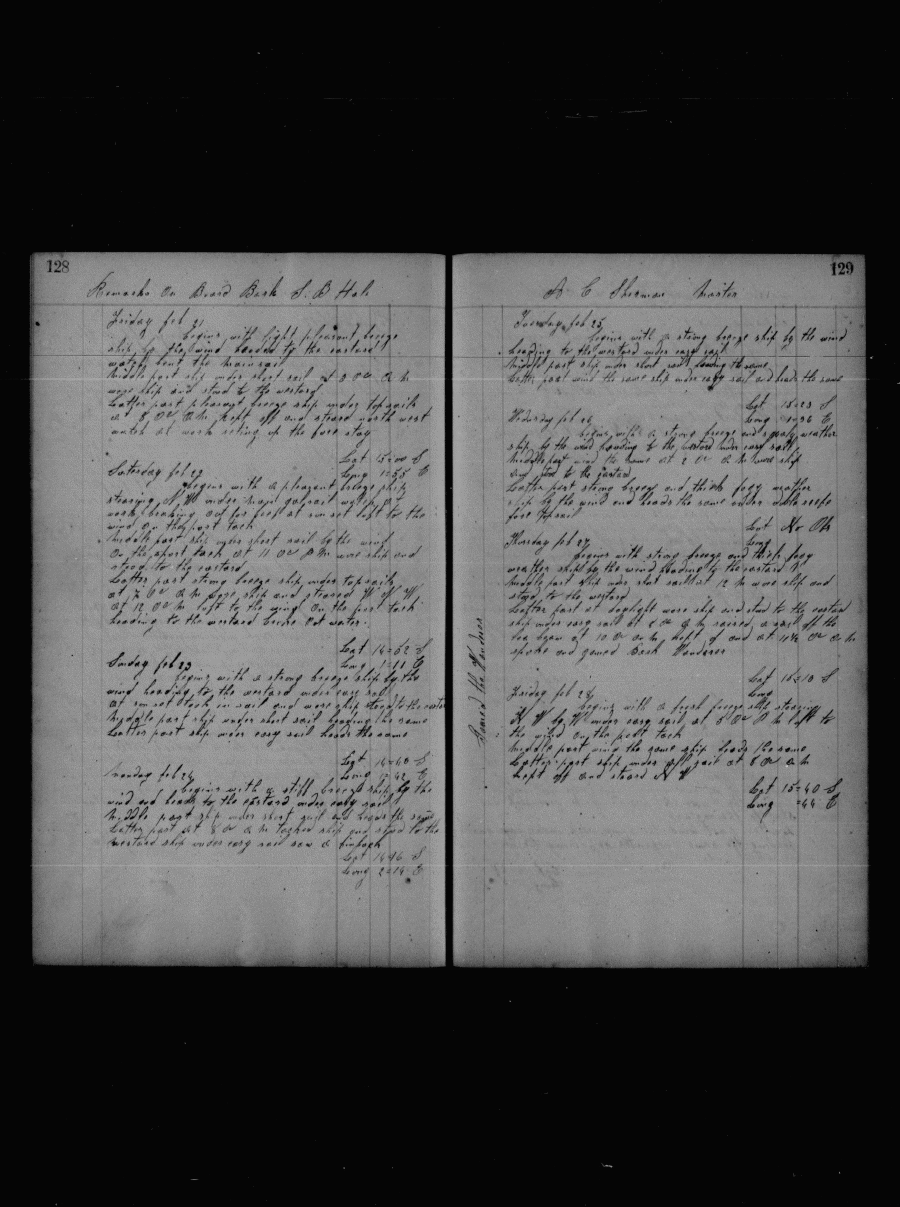 128
Remarks On Board Bark
Friday feb 21
begins with light pleasant breeze
ship by the wind headed to the eastard
watch bent the main sail
Middle part ship under short sail at 3 Oc A M
wore ship and stood to the westard
Latter part pleasant breeze ship under topsails
at 8 Oc A M kept off and steard north west
watch at work seting up the fore stay
Lat 15=00 S
Long 1=55 E
Saturday feb 22
begins with a pleasant breeze ship
stearing N W under main
work breaking out for at sun set luft to the
wind on the port tack
Middle part ship under short sail by the wind
On the tack at 11 Oc P M wore ship and
stood to the eastard
Latter part strong breeze ship under topsails
at 7 Oc A M wore ship and steared W N W
at 12 Oc M luft to the wind On the port tack
heading to the westard water
Lat 14=52 S
Long 1=11 E
Sunday feb 23
begins with a strong breeze ship by the
wind heading to the westard under easy sail
at sun set took in sail and wore ship stood to the eastard
Middle part ship under short sail heading the same
Latter part ship under easy sail heads the same
Lat S
Long E
Monday feb 24
begins with a stiff breeze ship by the
wind and heads to the eastard under easy sail
Middle part ship under short sail and heads the same
Latter part at 8 Oc A M tacked ship and stood to the
westard ship under easy sail saw a finback
Lat S
Long 2=14 E
129
A C Sherman Master
Tuesday feb 25
begins with a strong breeze ship by the wind
heading to the westard under easy sail
Middle part ship under short sail heading the same
Latter part wind the same ship under easy sail and heads the same
Lat 15=23 S
Long 1=36 E
Wedusday feb 26
begins with a strong breeze and squaly weather
ship by the wind heading to the westard under easy sail
Middle part wind the same at 2 Oc A M wore ship
and stood to the eastard
Latter part strong breeze and thick fogy weather
ship by the wind and heads the same under
fore topsail
Lat No Ob
Long
Thursday feb 27
begins with strong breeze and thick fogy
weather ship by the wind heading to the eastard
Middle part ship under short sail at 12 M wore ship and
stood to the westard
Latter part at daylight wore ship and stood to the eastard
ship under easy sail at 8 Oc A M raised a sail off the
lee beam at 10 Oc A M kept of and at 11½ Oc A M
spoke and gamed Bark Wanderer
Gamed the Wanderer
Lat 16=10 S
Long
Friday feb 28
begins with a fresh breeze ship stearing
N W by W under easy sail at 5 Oc P M luft to
the wind On the port tack
Middle part wing the same ship heads the same
Latter part ship under sail at 8 Oc A M
kept off and steard N W
Lat 15=40 S
Long =44 E